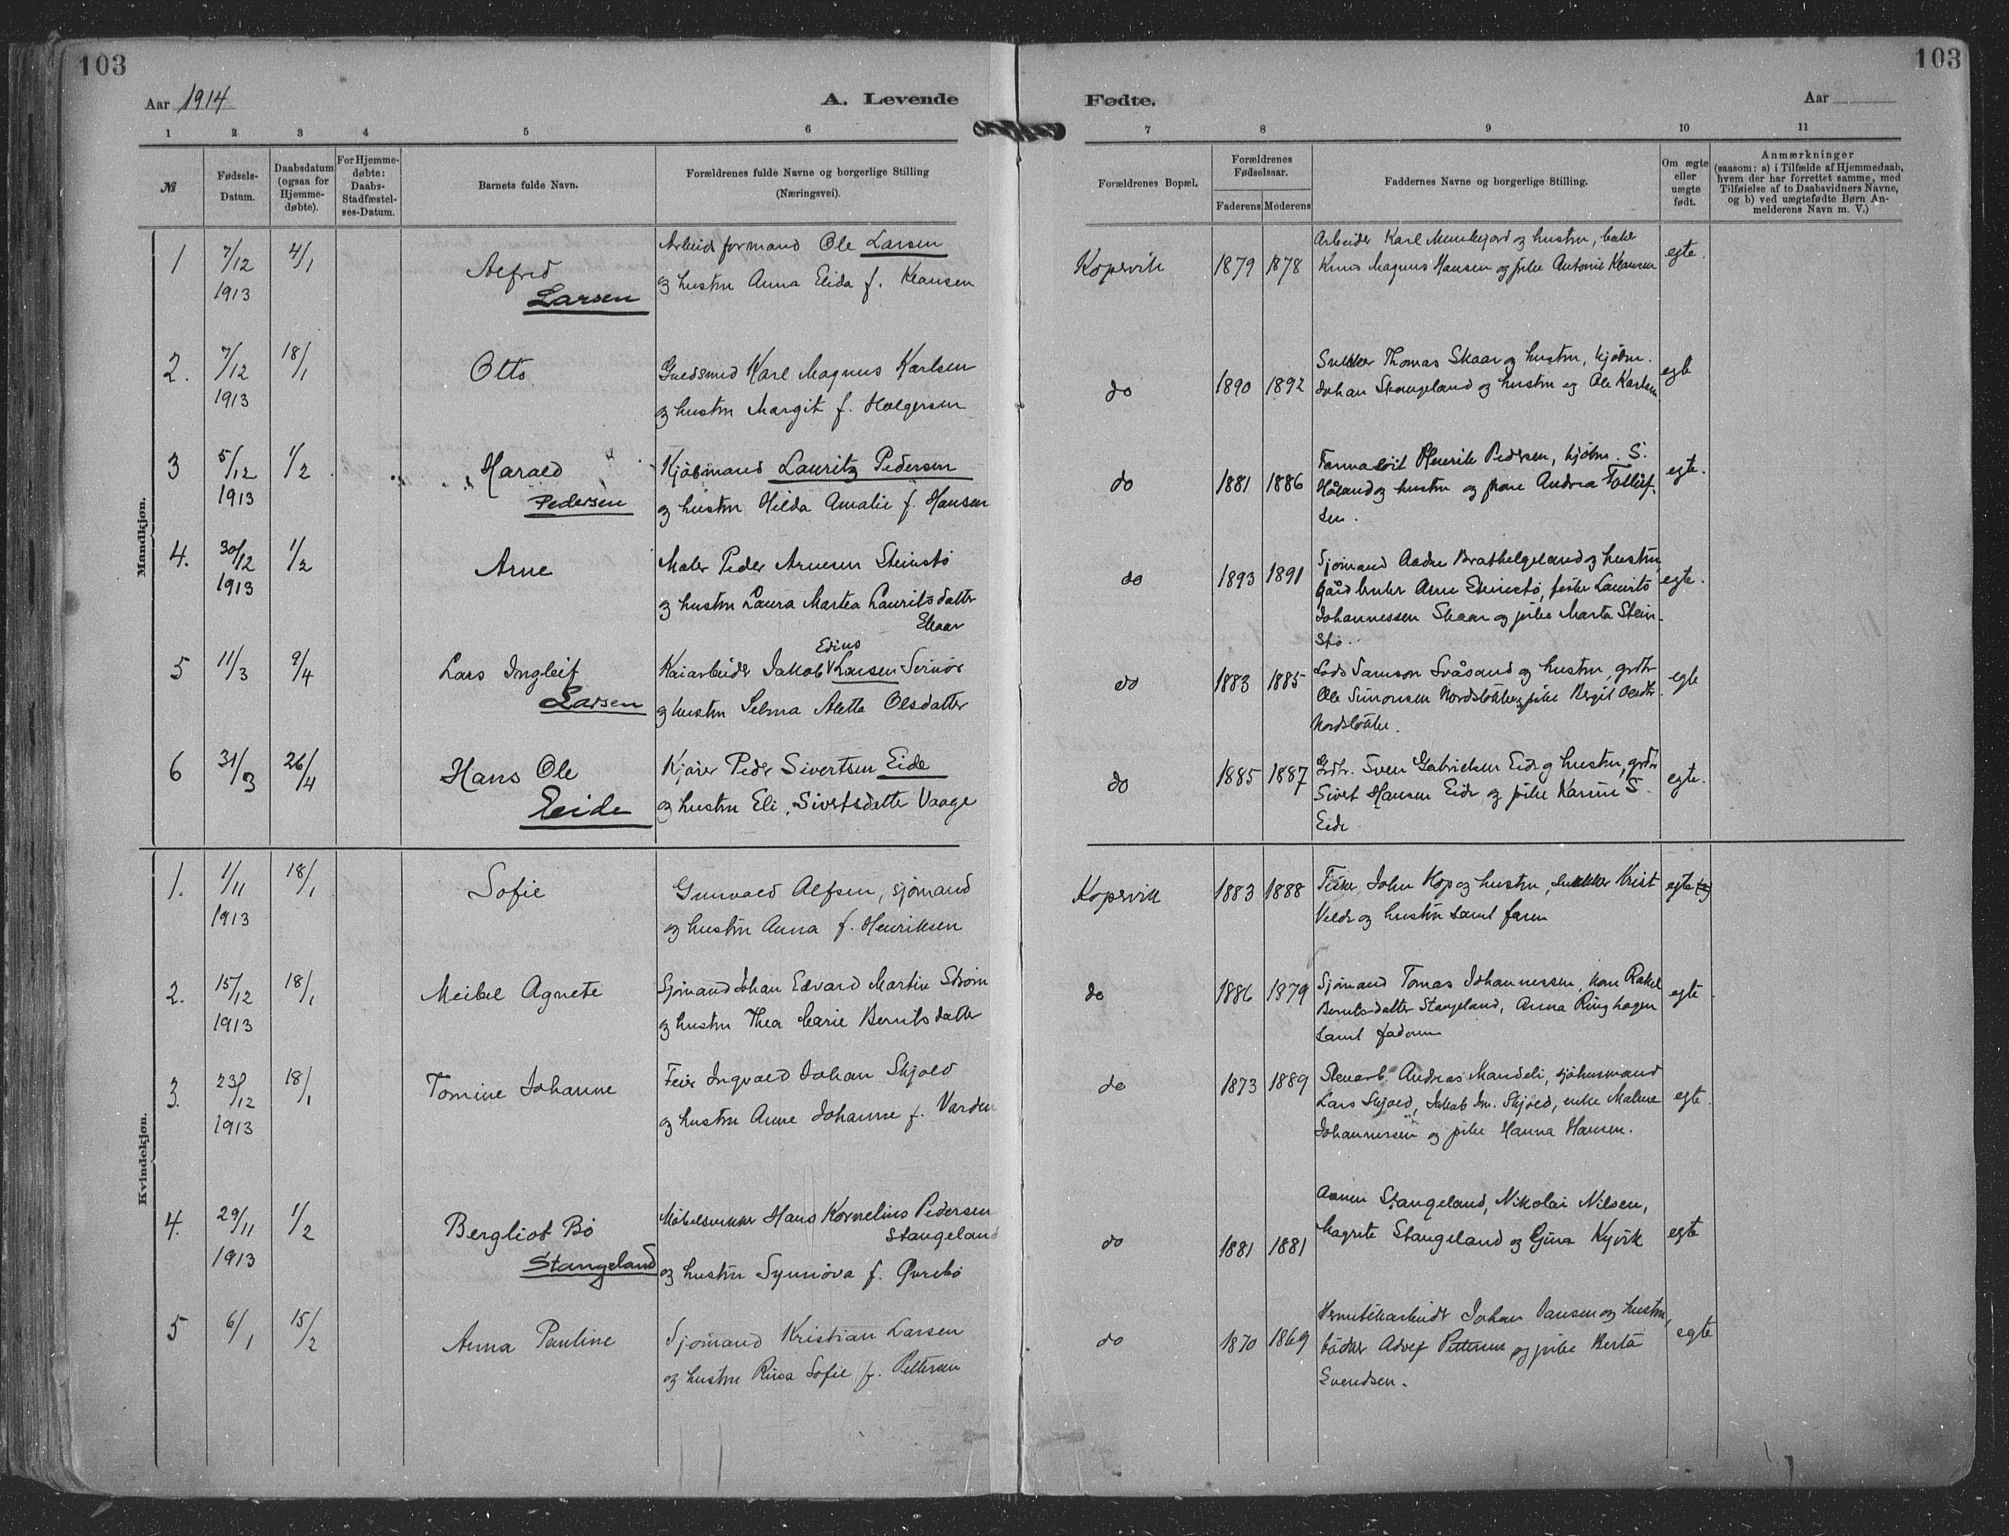 103
103
Aar 1914
A. Levende
Fødte.
Aar
1 2 3 4 5 6
7 8 9 10 11
№
Fødsels-
Datum.
Daabsdatum
(ogsaa for
Hjemme-
døbte).
For Hjemme-
døbte:
Daabs-
Stadfæstel-
ses-Datum.
Barnets fulde Navn.
Forældrenes fulde Navne og borgerlige Stilling
(Næringsvei).
Forældrenes Bopæl.
Forældrenes
Fødselsaar.
Faderens Moderens
Faddernes Navne og borgerlige Stilling.
Om ægte
eller
uægte
født.
Anmærkninger
(saasom: a) i Tilfælde af Hjemmedaab,
hvem der har forrettet samme, med
Tilføielse af to Daabsvidners Navne,
og b) ved uægtefødte Børn An-
melderens Navn m. V.)
Mandkjøn.
1 7/12 1913 4/1
Alfred
Larsen
Arbeidsformand Ole Larsen
og hustru Anna Elida f. Klausen
Kopervik 1879 1878
Arbeider Karl Munkejord og hustru,
Magnus Hansen og pike Antonie Klausen
egte.
2. 7/12 1913 18/1
Otto
Guldsmed Karl Magnus Karlsen
og hustru Margit f. Holgersen
do 1890 1892
Snekker Thomas Skaar og hustru, kjøbm.
Johan Stangeland og hustru og Ole Karlsen
egte
3 5/12 1913 1/2
Harald
Pedersen
Kjøbmand Lauritz Pedersen
og hustru Hilda Amalie f. Hansen
do 1881 1886
Henrik Pedersen, kjøbm. S.
Håland og hustru og Andrea Tollef-
sen.
egte.
4. 30/12 1913 1/2
Arne
Maler Peder Arnesen Steinstø
og hustru Laura Martea Lauritsdatter
Skaar
do 1893 1891
Sjømand Brathelgeland og hustru,
Arne Steinstø, fisker Laurits
Johannessen Skaar og pike Marta Stein-
stø.
egte.
5 11/3 9/4
Lars Ingleif
Larsen
Edius
Kaiarbeider Jakob Larsen
og hustru Selma Aletta Olsdatter
do 1883 1885
Lods Samson Svåsand og hustru, grdbr
Ole Simonsen Nordstokke og pike Bergit Olsdtr
Nordstokke.
egte
6 31/3 26/4
Hans Ole
Eide
Kjører Peder Sivertsen Eide
og hustru Eli Sivertsdatter Vaage
do 1885 1887
Grdbr. Sven Gabrielsen Eide og hustru, grdbr
Sivert Hansen Eide og pike Karine S.
Eide
egte.
Kvindekjøn.
1. 1/11 1913 18/1
Sofie
Gunvald Alfsen, sjømand
og hustru Anna f. Henriksen
Kopervik 1883 1888
Fisker John Hop og hustru, snekker Krist
Velde og hustru samt faren
egte
2. 15/12 1913 18/1
Meibel Agnete
Sjømand Johan Edvard Martin Strøm
og hustru Thea Marie Berntsdatter
do 1886 1879
Sjømand Tomas Johannessen, kone Rakel
Berntsdatter Stangeland, Anna Ringhagen
samt faderen
egte
3. 23/12 1913 18/1
Tomine Johanne
Feier Ingvald Johan Skjold
og hustru Anne Johanne f. Varden
do 1873 1889
Stenarb. Andreas Mandeli, sjøhusmand
Lars Skjold, Jakob Skjold, enke Malene
Johannessen og pike Hanna Hansen.
egte.
4. 29/11 1913 1/2
Bergliot Bø
Stangeland
Møbelsnekker Hans Kornelius Pedersen
Stangeland
og hustru Synnøva f. Øvrebø
do 1881 1881
Stangeland, Nikolai Nilsen,
Magrete Stangeland og Gina Kyvik
egte
5 6/1 15/2
Anna Pauline
Sjømand Kristian Larsen
og hustru Sofie f. Pettersen
do 1870 1869
Hermetikarbeider Johan Jansen og hustru,
bødker Adolf Pettersen og pike Berta
Svendsen.
egte